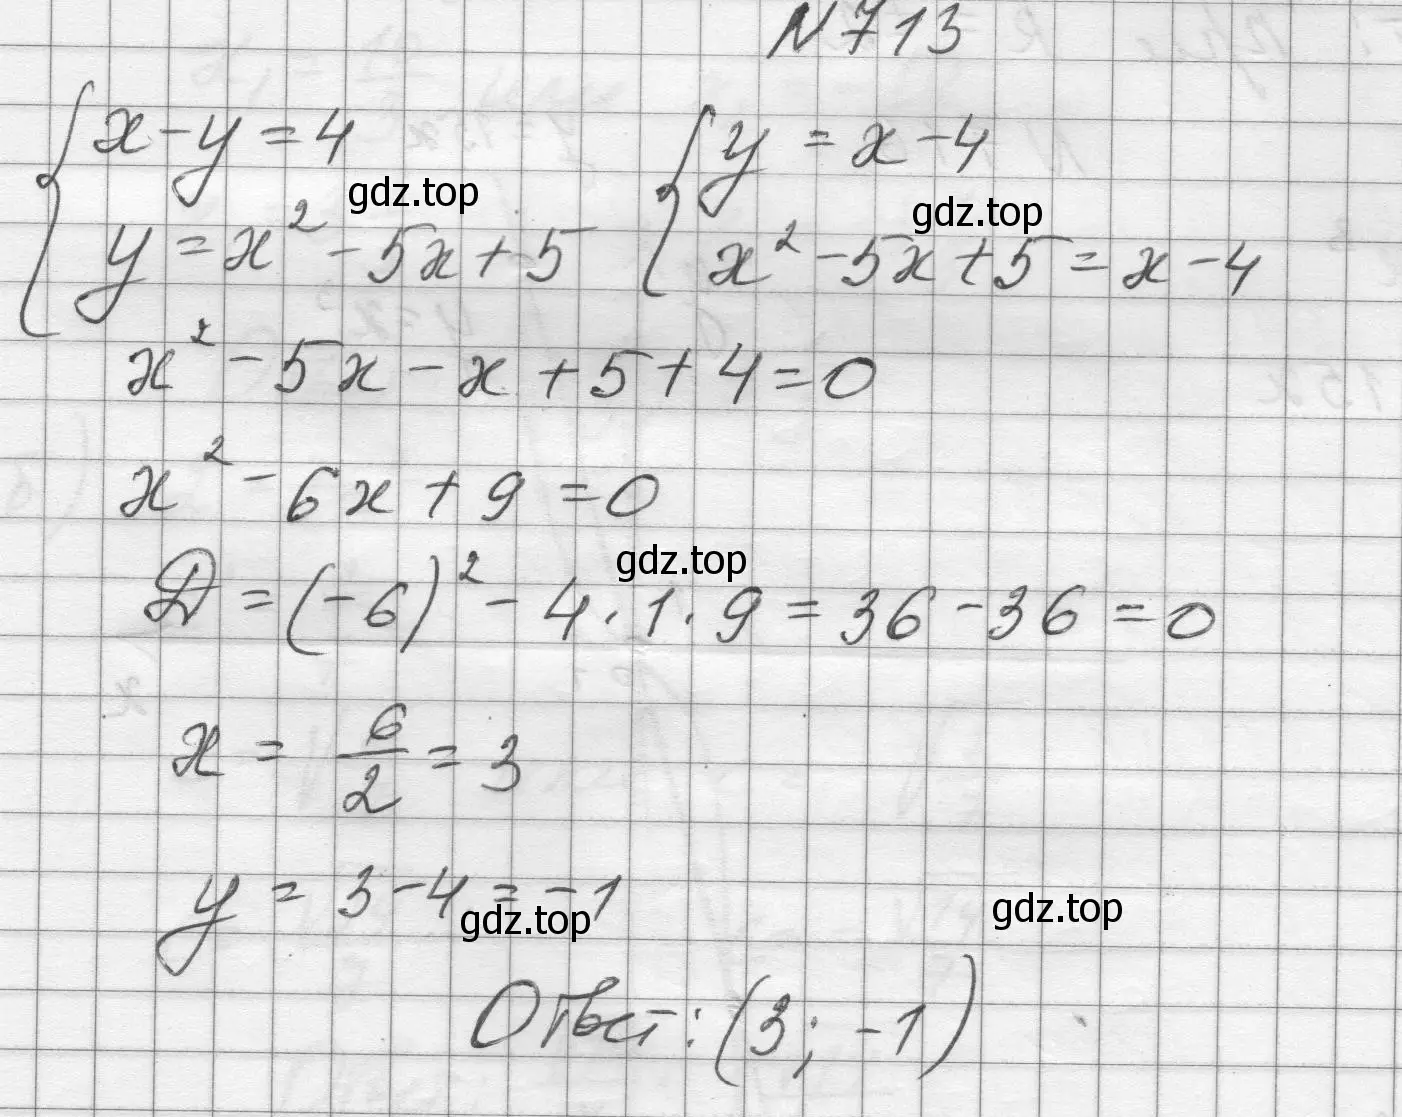 N 713
{ x - y = 4    { y = x - 4
gdz.top    gdz.top
y = x² - 5x + 5    x² - 5x + 5 = x - 4
x² - 5x - x + 5 + 4 = 0
x² - 6x + 9 = 0
gdz.top
D = (-6)² - 4 · 1 · 9 = 36 - 36 = 0
x = 6/2 = 3
y = 3 - 4 = -1
gdz.top    gdz.top
Ответ: (3; -1)